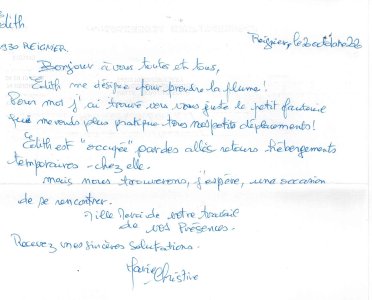 Edith
1930 REIGNIER
Reignier, le 2 octobre 22
Bonjour à vous toutes et tous,
Edith me désigne pour prendre la plume!
Pour moi j'ai trouvé vers vous juste le petit fauteuil
qui me rends plus pratique tous mes petits déplacements!
Edith est "occupée" par des allés retours hébergements
temporaires - chez elle.
mais nous trouverons, j'espère, une occasion
de se rencontrer.
Mille Merci de votre travail
de vos Présences.
Recevez mes sincères salutations.
Marie Christine